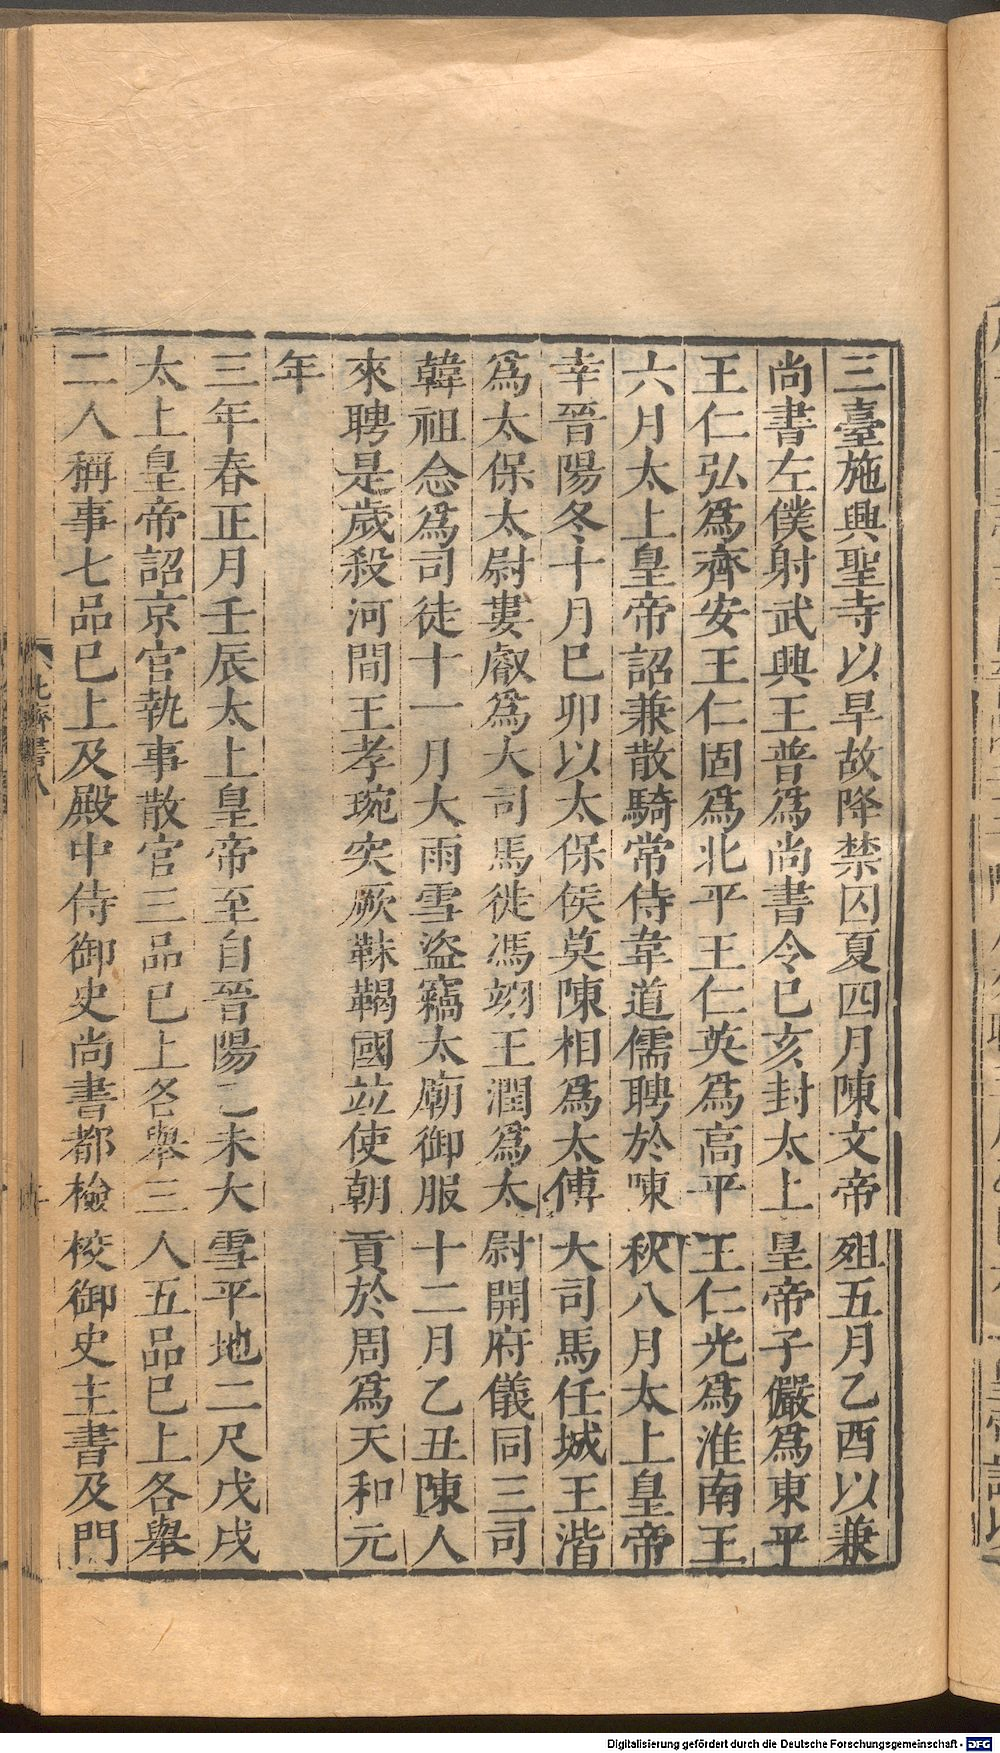 三臺施興聖寺以旱故降禁囚夏四月陳文帝殂五月乙酉以兼
尚書左僕射武興王普爲尚書令巳亥封太上皇帝子儼爲東平
王仁弘爲齊安王仁固爲北平王仁英爲高平王仁光爲淮南王
六月太上皇帝詔兼散騎常侍韋道儒聘於陳秋八月太上皇帝
幸晉陽冬十月巳卯以太保侯莫陳相爲太傅大司馬任城王湝
爲太保太尉婁叡爲大司馬徙馮翊王潤爲太尉開府儀同三司
韓祖念爲司徒十一月大雨雪盜竊太廟御服十二月乙丑陳人
來聘是歲殺河間王孝琬突厥靺鞨國竝使朝貢於周爲天和元
年
三年春正月壬辰太上皇帝至自晉陽乙未大雪平地二尺戊戌
太上皇帝詔京官執事散官三品巳上各舉三人五品巳上各舉
二人稱事七品巳上及殿中侍御史尚書都檢校御史主書及門
北齊書八
Digitalisierung gefördert durch die Deutsche Forschungsgemeinschaft - DFG